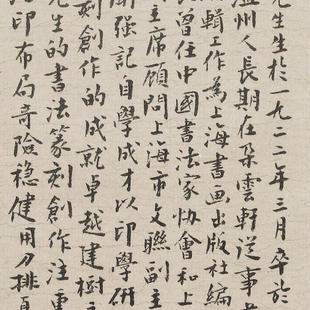 先生生於一九二二年三月卒於
温州人長期在朵雲軒從事
輯工作為上海書画出版社編
曾任中國書法家协會和上
主席顧問上海市文聯副主
聞强記自學成才以印學研
刻創作的成就卓越建樹
先生的書法篆刻創作注重
印布局奇險穩健用刀排